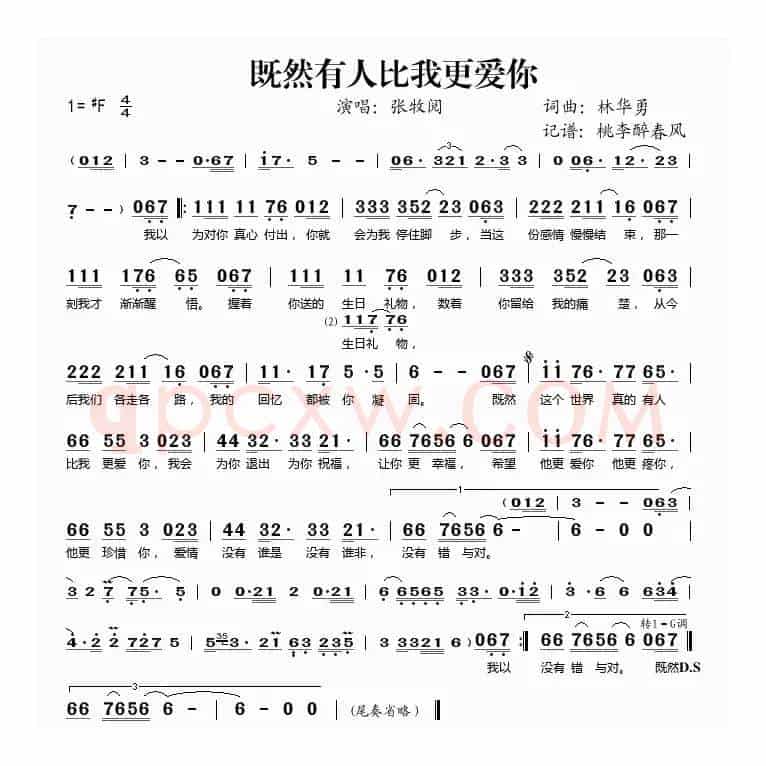 既然有人比我更爱你
1=♯F 4/4 演唱：张牧阅 词曲：林华勇
记谱：桃李醉春风
(012 | 3 - - 0·67 | i7· 5 - - | 06· 321 2·33 | 0 06· 12·23
7 - - ) 067 ‖: 111 11 76 012 | 333 352 23 063 | 222 211 16 067 |
我以 为对你 真心 付出，你就 会为我 停住脚 步，当这 份感情 慢慢结 束，那一
111 176 65 067 | 111 11 76 012 | 333 352 23 063 |
刻我才 渐渐醒 悟。握着 你送的 生日 礼物，数着 你留给 我的痛 楚，从今
(2) 117 76
生日礼 物，
222 211 16 067 | 111· 17 5·5 | 6 - - 067 | ii 76·77 65· |
后我们 各走各 路，我的 回忆 都被 你 凝 固。 既然 这个 世界 真的 有人
66 55 3 023 | 44 32·33 21· | 66 7656 6 067 | ii 76·77 65· |
比我 更爱 你，我会 为你 退出 为你 祝福，让你 更 幸福，希望 他更 爱你 他更 疼你，
1
(012 | 3 - - 063 |
66 55 3 023 | 44 32·33 21· | 66 7656 6 - | 6 - 0 0 |
他更 珍惜 你，爱情 没有 谁是 没有 谁非，没有 错 与对。
3 2 7 75·5 | 0 0 0·21 2 0·21 | 6 6565 33·0·12 | 3·6 6 634 |
2 转1=G调
4·2 2 727 5 | 5 3·21 63 235 | 3 3321 6 ) 067 :‖ 66 7656 6 067 ‖
我以 没有 错 与对。 既然D.S
3
66 7656 6 - | 6 - 0 0 | (尾奏省略) ‖
qpcxw.com